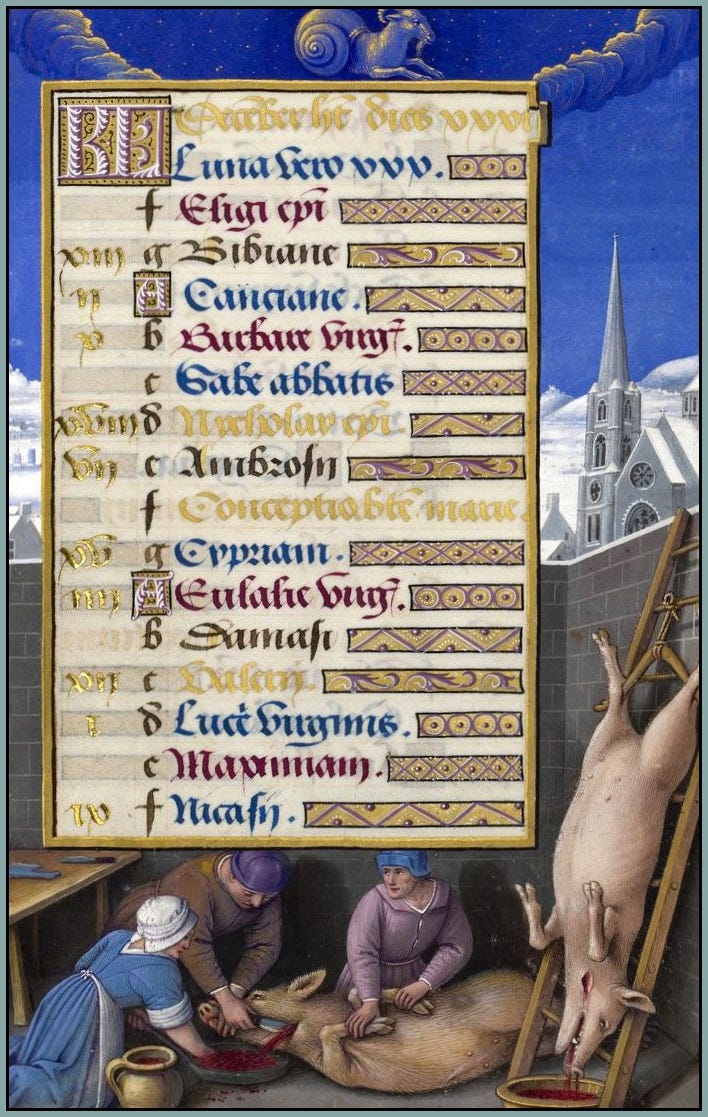 KL December ht dies xxxi
Luna vero xxx.
f Eligi epi
xiii g Bibiane
ii A Canciane.
x b Barbare virg.
c Sabe abbatis
xviii d Nycholay epi.
vii e Ambrosii
f Conceptio bte marie.
xv g Cypriani.
iiii A Eulalie virg.
b Damasi
xii c Valeri.
i d Luce virginis.
e Maximiani.
ix f Nicasii.